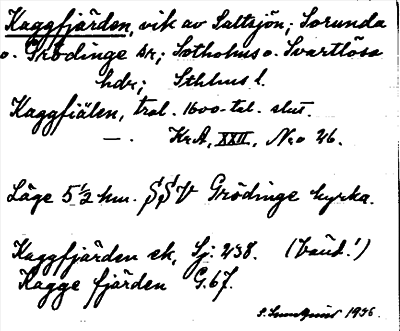 Kaggfjärden, vik av Saltsjön; Sorunda
o. Grödinge sr; Sotholms o. Svartlösa
hdr; Sthlms l.
Kaggfiälen, trol. 1600-tal. slut.
— . KrA, XXII, Nro 26.
Läge 5½ km. SSV Grödinge kyrka.
Kaggfjärden ek, Sj: 238. (Båud!)
Kagge fjärden G.67.
1936.